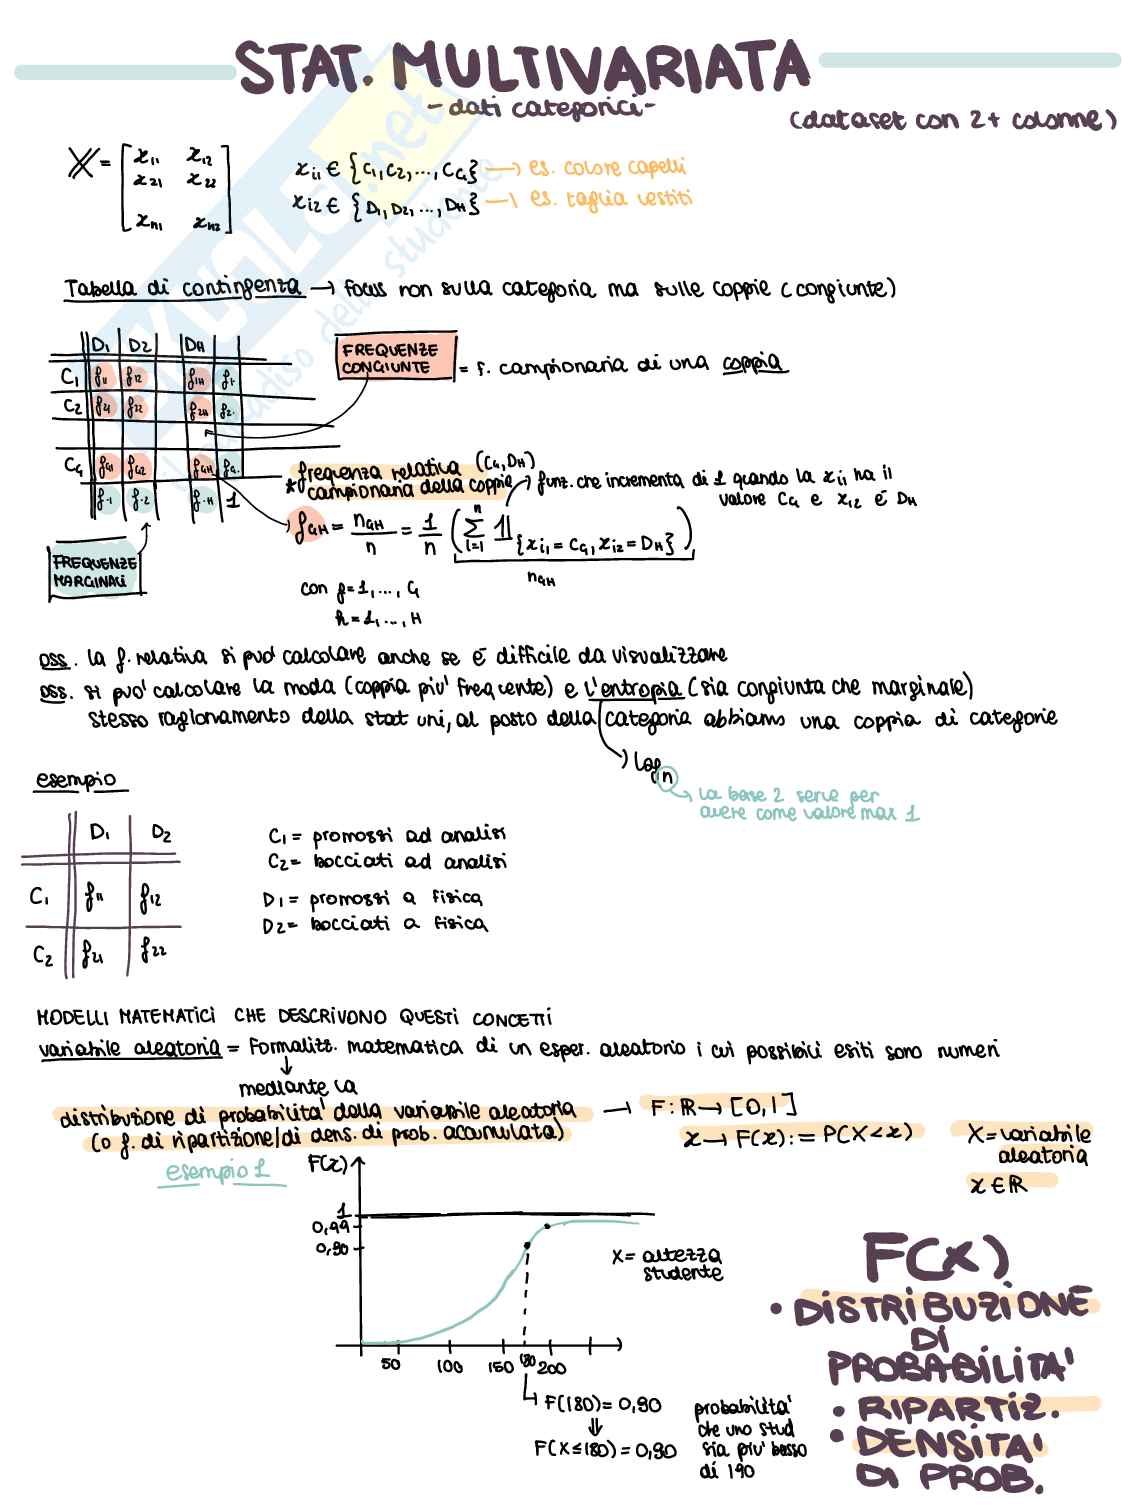 STAT. MULTIVARIATA
- dati categorici -
(dataset con 2+ colonne)
X = [ x11 x12
x21 x22
xn1 xn2 ]
xi1 ∈ {C1, C2, ..., CG} → es. colore capelli
xi2 ∈ {D1, D2, ..., DH} → es. taglia vestiti
Tabella di contingenza → focus non sulla categoria ma sulle coppie (congiunte)
D1 D2 DH
C1 f11 f12 f1H f1.
C2 f21 f22 f2H f2.
CG fG1 fG2 fGH fG.
f.1 f.2 f.H 1
FREQUENZE
CONGIUNTE
= f. campionaria di una coppia
FREQUENZE
MARGINALI
* frequenza relativa (CG, DH)
campionaria della coppia
→ funz. che incrementa di 1 quando la xi1 ha il
valore CG e xi2 è DH
fGH = nGH/n = 1/n ( Σ i=1 n 𝟙 {xi1 = CG, xi2 = DH} )
nGH
con g=1, ..., G
h=1, ..., H
oss. la f. relativa si può calcolare anche se è difficile da visualizzare
oss. si può calcolare la moda (coppia più frequente) e l'entropia (sia congiunta che marginale)
stesso ragionamento della stat uni, al posto della categoria abbiamo una coppia di categorie
→ log n
→ la base 2 serve per
avere come valore max 1
esempio
D1 D2
C1 f11 f12
C2 f21 f22
C1 = promossi ad analisi
C2 = bocciati ad analisi
D1 = promossi a fisica
D2 = bocciati a fisica
MODELLI MATEMATICI CHE DESCRIVONO QUESTI CONCETTI
variabile aleatoria = Formalizz. matematica di un esper. aleatorio i cui possibili esiti sono numeri
↓
mediante la
distribuzione di probabilità della variabile aleatoria → F: ℝ → [0,1]
(o f. di ripartizione/di dens. di prob. accumulata)
x → F(x) := P(X<x)
X = variabile
aleatoria
x ∈ ℝ
esempio 1
F(x)
1
0,99
0,90
50 100 150 180 200
X = altezza
studente
F(180) = 0,90
⇓
F(X≤180) = 0,90
probabilità
che uno stud
sia più basso
di 190
F(x)
• DISTRIBUZIONE
DI
PROBABILITA'
• RIPARTIZ.
• DENSITA'
DI PROB.